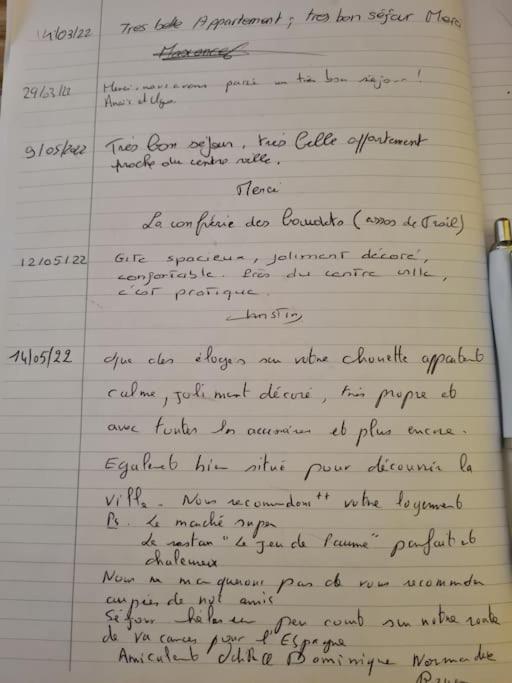 14/03/22 Tres belle Appartement, tres bon séjour Merci
29/03/22 Merci, nous avons passé un très bon séjour!
Anaïs et
9/05/2022 Très bon séjour, très belle appartement
proche du centre ville.
Merci
La confrérie des Baudets (assos de Trail)
12/05/22 Gîte spacieux, joliment décoré,
confortable. Près du centre ville,
c'est pratique.
14/05/22 Que des éloges sur votre chouette appartent
calme, joliment décoré, très propre et
avec toutes les accessoires et plus encore.
Egalent bien situé pour découvrir la
ville. Nous recommandons++ votre logement
Ps. Le marché super
Le restau "Le jeu de Paume" parfait et
chaleureux
Nous ne manquerons pas de vous recommander
auprès de nos amis
Séjour hélas un peu court sur notre route
de vacances pour l'Espagne
Amicalent Dominique Normandie